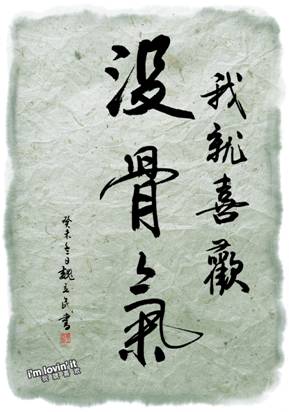 我就喜歡
沒骨氣
癸未冬日魏立民書
i'm lovin' it
我就喜欢